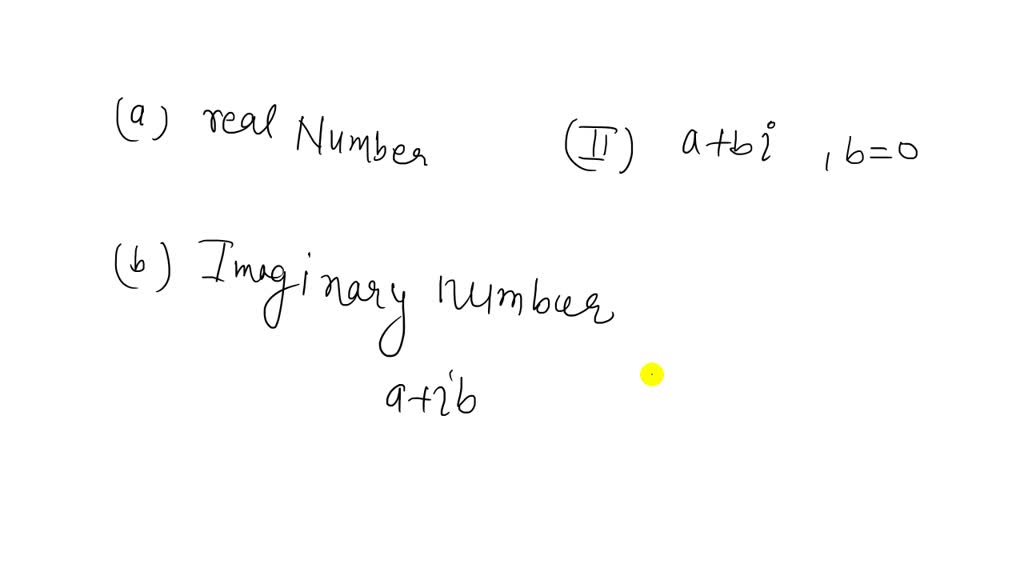 (a) real Number (II) a+bi , b=0
(b) Imaginary number
a+ib